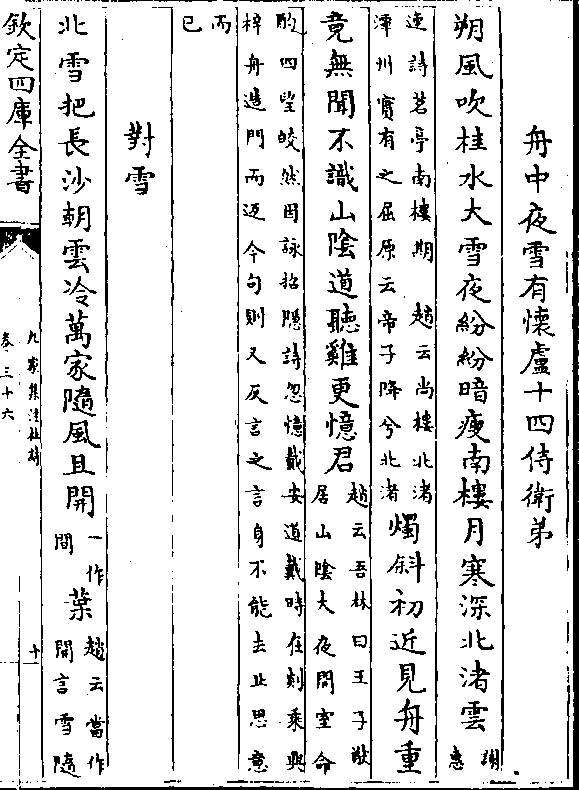 舟中夜雪有懷盧十四侍衛弟
朔風吹桂水大雪夜紛紛暗瘦南樓月寒深北渚雲謝惠
連詩茗亭南樓期 趙云尚樓北渚潭州實有之屈原云帝子降兮北渚燭斜初近見舟重
竟無聞不識山陰道聽雞更憶君趙云吾林曰王子猷居山陰大夜開室命
酌四望皎然因詠招隱詩忽憶戴安道戴時在剡乘興梓舟造門而返今句則又反言之言身不能去止思意
而已
對雪
北雪把長沙朝雲冷萬家隨風且開一作間葉趙云當作開言雪隨
欽定四庫全書
九家集注杜詩
卷三十六
十